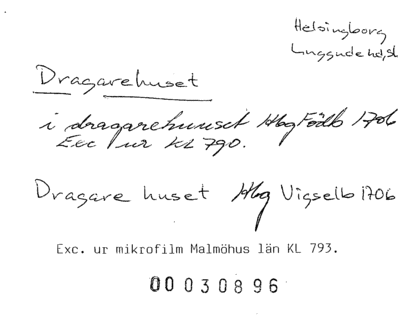 Helsingborg
Luggude hd, sk
Dragarehuset
i dragarehuuset Hbg Födb 1706
Exc ur KL 790.
Dragare huset Hbg Vigselb 1706
Exc. ur mikrofilm Malmöhus län KL 793.
00030896